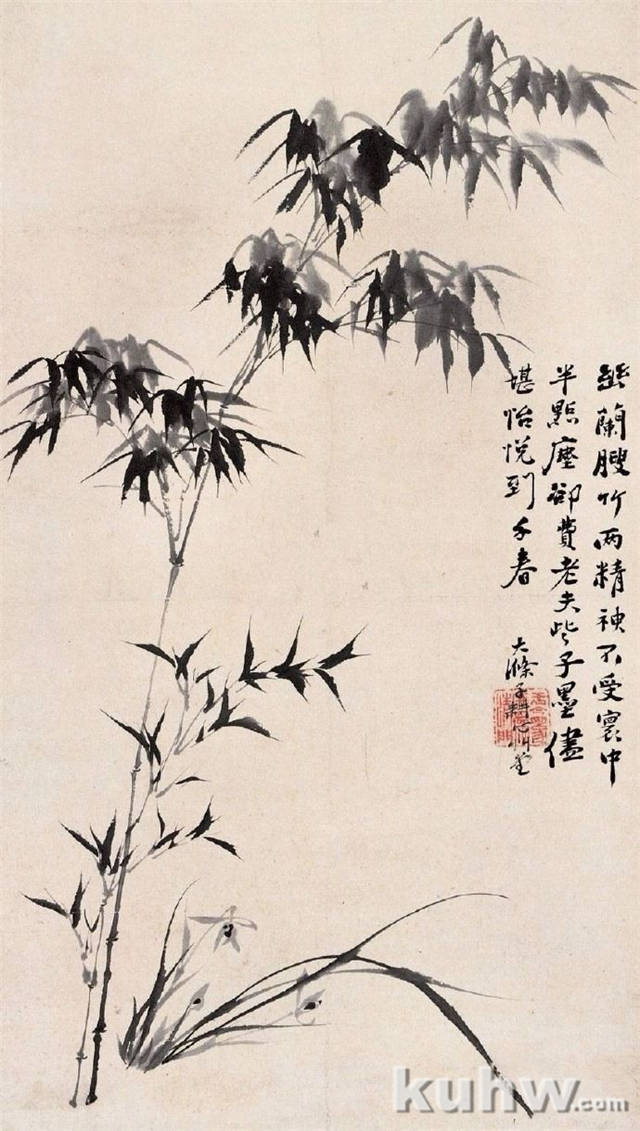 幽蘭瘦竹兩精神不受寰中
半點塵卻費老夫些子墨儘
堪怡悅到千春
大滌子耕心堂
kuhw.com